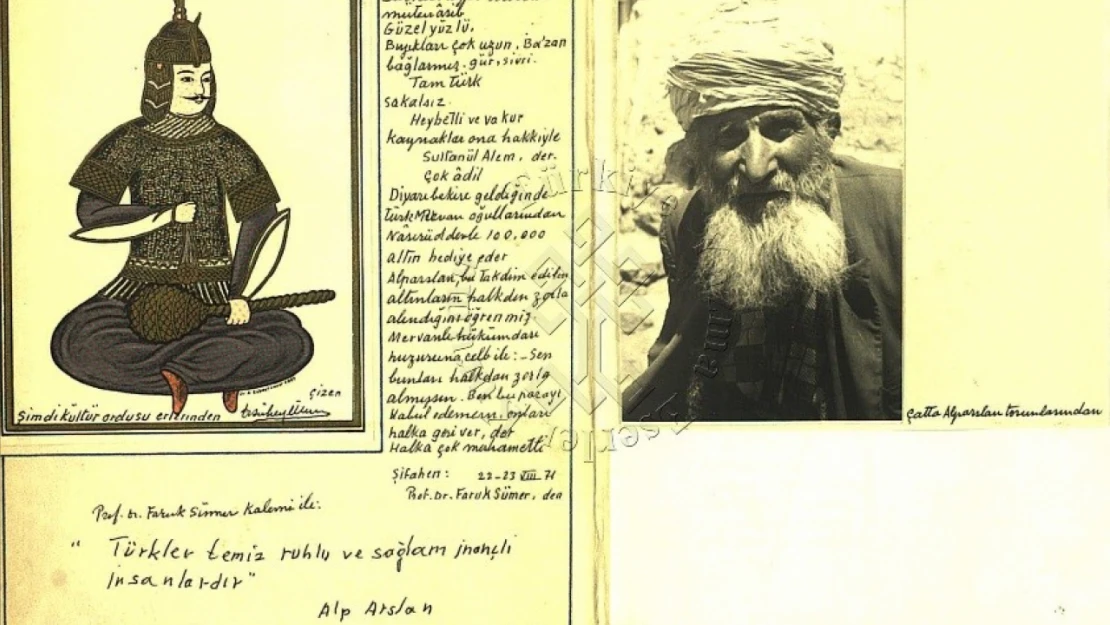 mütenâsib
Güzel yüzlü,
Bıyıkları çok uzun, Ba'zan
bağlarmış. gür, sivri.
Tam türk
sakalsız.
Heybetli ve vakur
kaynaklar ona hakkiyle
Sultanül Alem, der.
Çok âdil
Diyarebekire geldiğinde
türk Mervan oğullarından
Nâsırüddevle 100.000
altın hediye eder
Alparslan, bu takdim edilen
altınların halkdan zorla
alındığını öğrenmiş.
Mervanlı hükümdarı
huzuruna celb ile: - Sen
bunları halkdan zorla
almışsın. Ben bu parayı
Kabul edemem, onları
halka geri ver, der
Halka çok merhametli
Şifahen: 22-23 VIII 71
Prof. Dr. Faruk Sümer, den
çizen
Şimdi kültür ordusu erlerinden
Prof. Dr. Faruk Sümer Kalemi ile:
" Türkler temiz ruhlu ve sağlam inançlı
insanlardır"
Alp Arslan
Çatta Alparslan torunlarından
Türkiye
Eserler